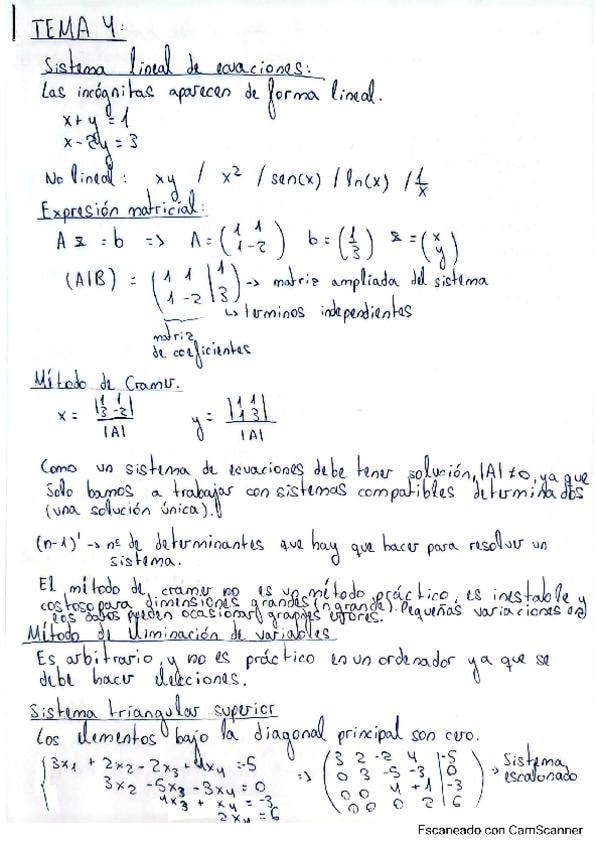 TEMA 4:
Sistema lineal de ecuaciones:
Las incógnitas aparecen de forma lineal.
x+y=1
x-2y=3
No lineal: xy / x² / sen(x) / ln(x) / 1/x
Expresión matricial:
A x = b => A = (1 1 1 -2) b = (1 3) x = (x y)
(A|B) = (1 1 | 1 1 -2 | 3) -> matriz ampliada del sistema
↳ terminos independientes
matriz
de coeficientes
Método de Cramer.
x = |1 1 3 -2| / |A| y = |1 1 1 3| / |A|
Como un sistema de ecuaciones debe tener solución, |A| ≠ 0, ya que
solo bamos a trabajar con sistemas compatibles determinados
(una solución única).
(n-1)' -> nº de determinantes que hay que hacer para resolver un
sistema.
El método de cramer no es un método práctico, es inestable y
costoso para dimensiones grandes (n grande). Pequeñas variaciones en
los datos pueden ocasionar grandes errores.
Método de eliminación de variables
Es arbitrario y no es práctico en un ordenador ya que se
debe hacer elecciones.
Sistema triangular superior
Los elementos bajo la diagonal principal son cero.
3x1 + 2x2 - 2x3 + 4x4 = -5
3x2 - 5x3 - 3x4 = 0
4x3 + x4 = -3
2x4 = 6
=> (3 2 -2 4 | -5
0 3 -5 -3 | 0
0 0 4 +1 | -3
0 0 0 2 | 6)
-> Sistema
escalonado
Escaneado con CamScanner